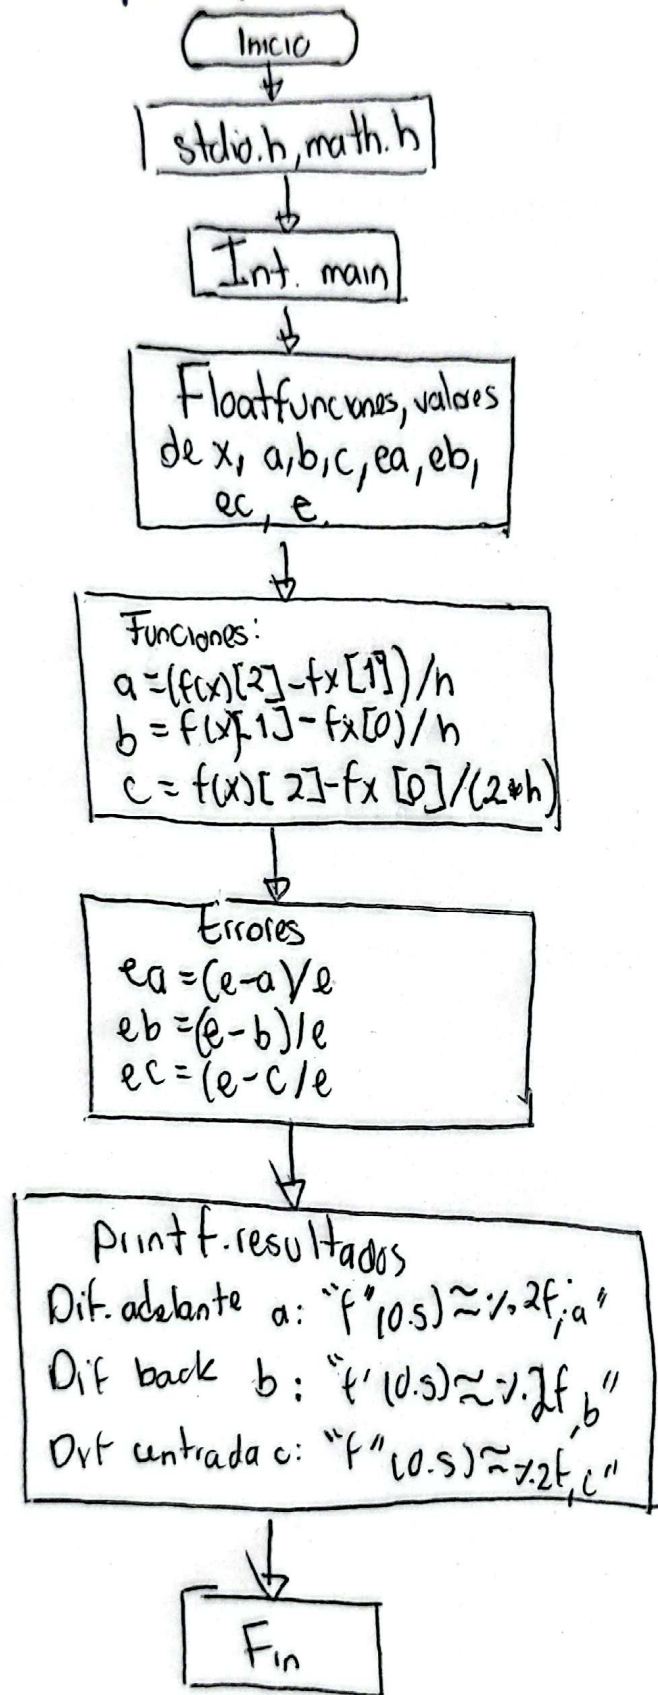 Inicio
stdio.h, math.h
Int. main
Float funciones, valores
de x, a,b,c, ea, eb,
ec, e.
Funciones:
a=(f(x)[2]-fx[1])/h
b = f(x)[1]-fx[0)/h
c = f(x)[2]-fx[0]/(2*h)
Errores
ea=(e-a)/e
eb=(e-b)/e
ec=(e-c/e
printf.resultados
Dif. adelante a: "f"(0.5)≈%.2f,a"
Dif back b: "f'(0.5)≈%.2f,b"
Dif centrada c: "f"(0.5)≈%.2f,c"
Fin